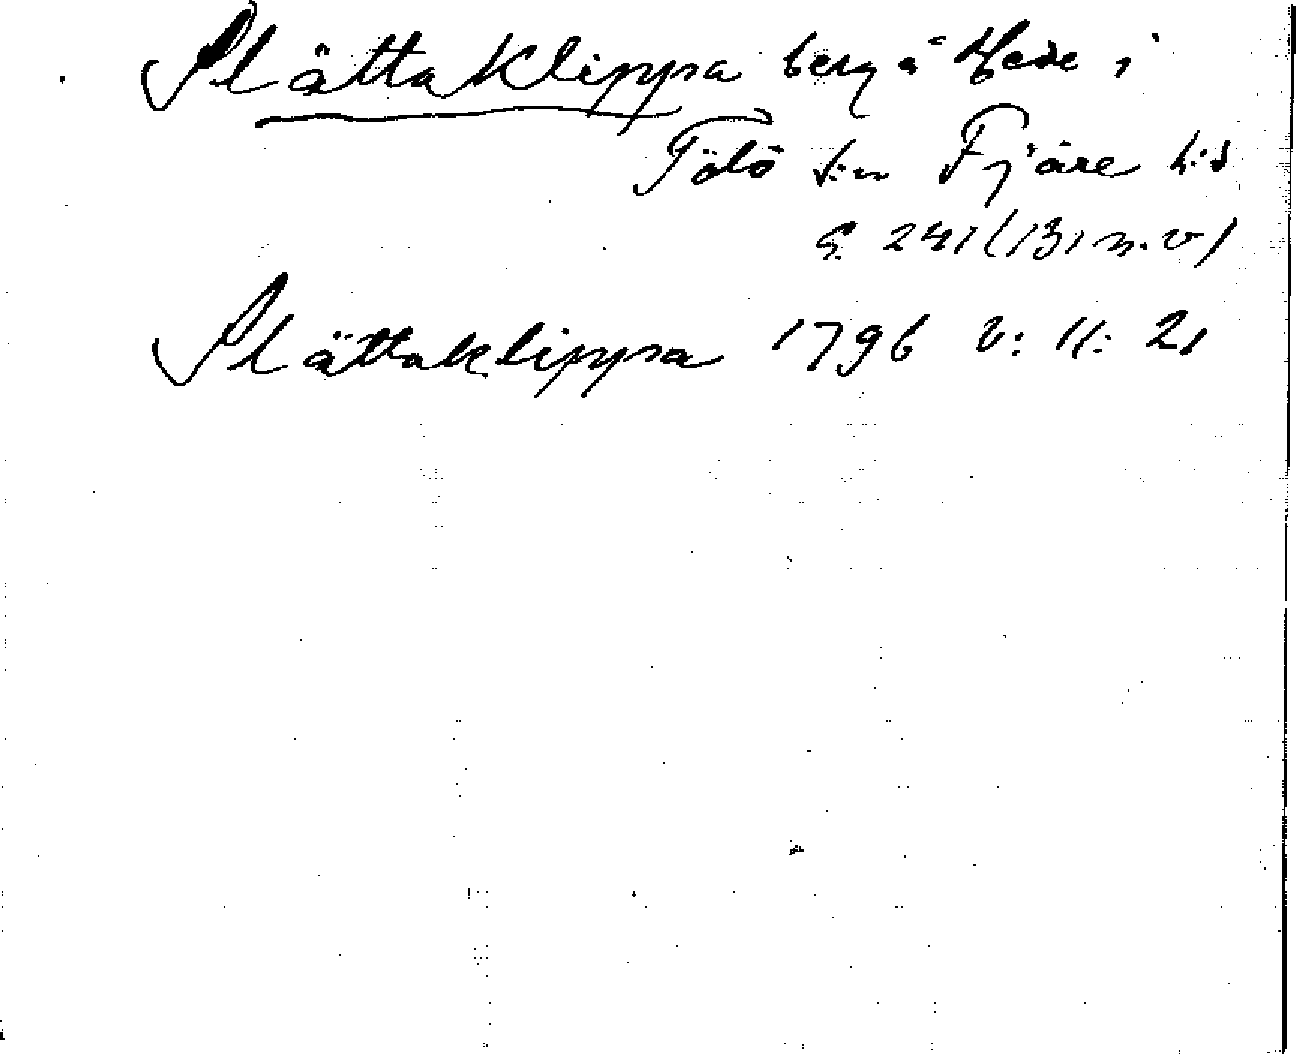 Slättaklippa berg å Hede i
Tölö s:n Fjäre h:d
G 241 (131 n. v)
Slättaklippa 1796 v: 11: 21